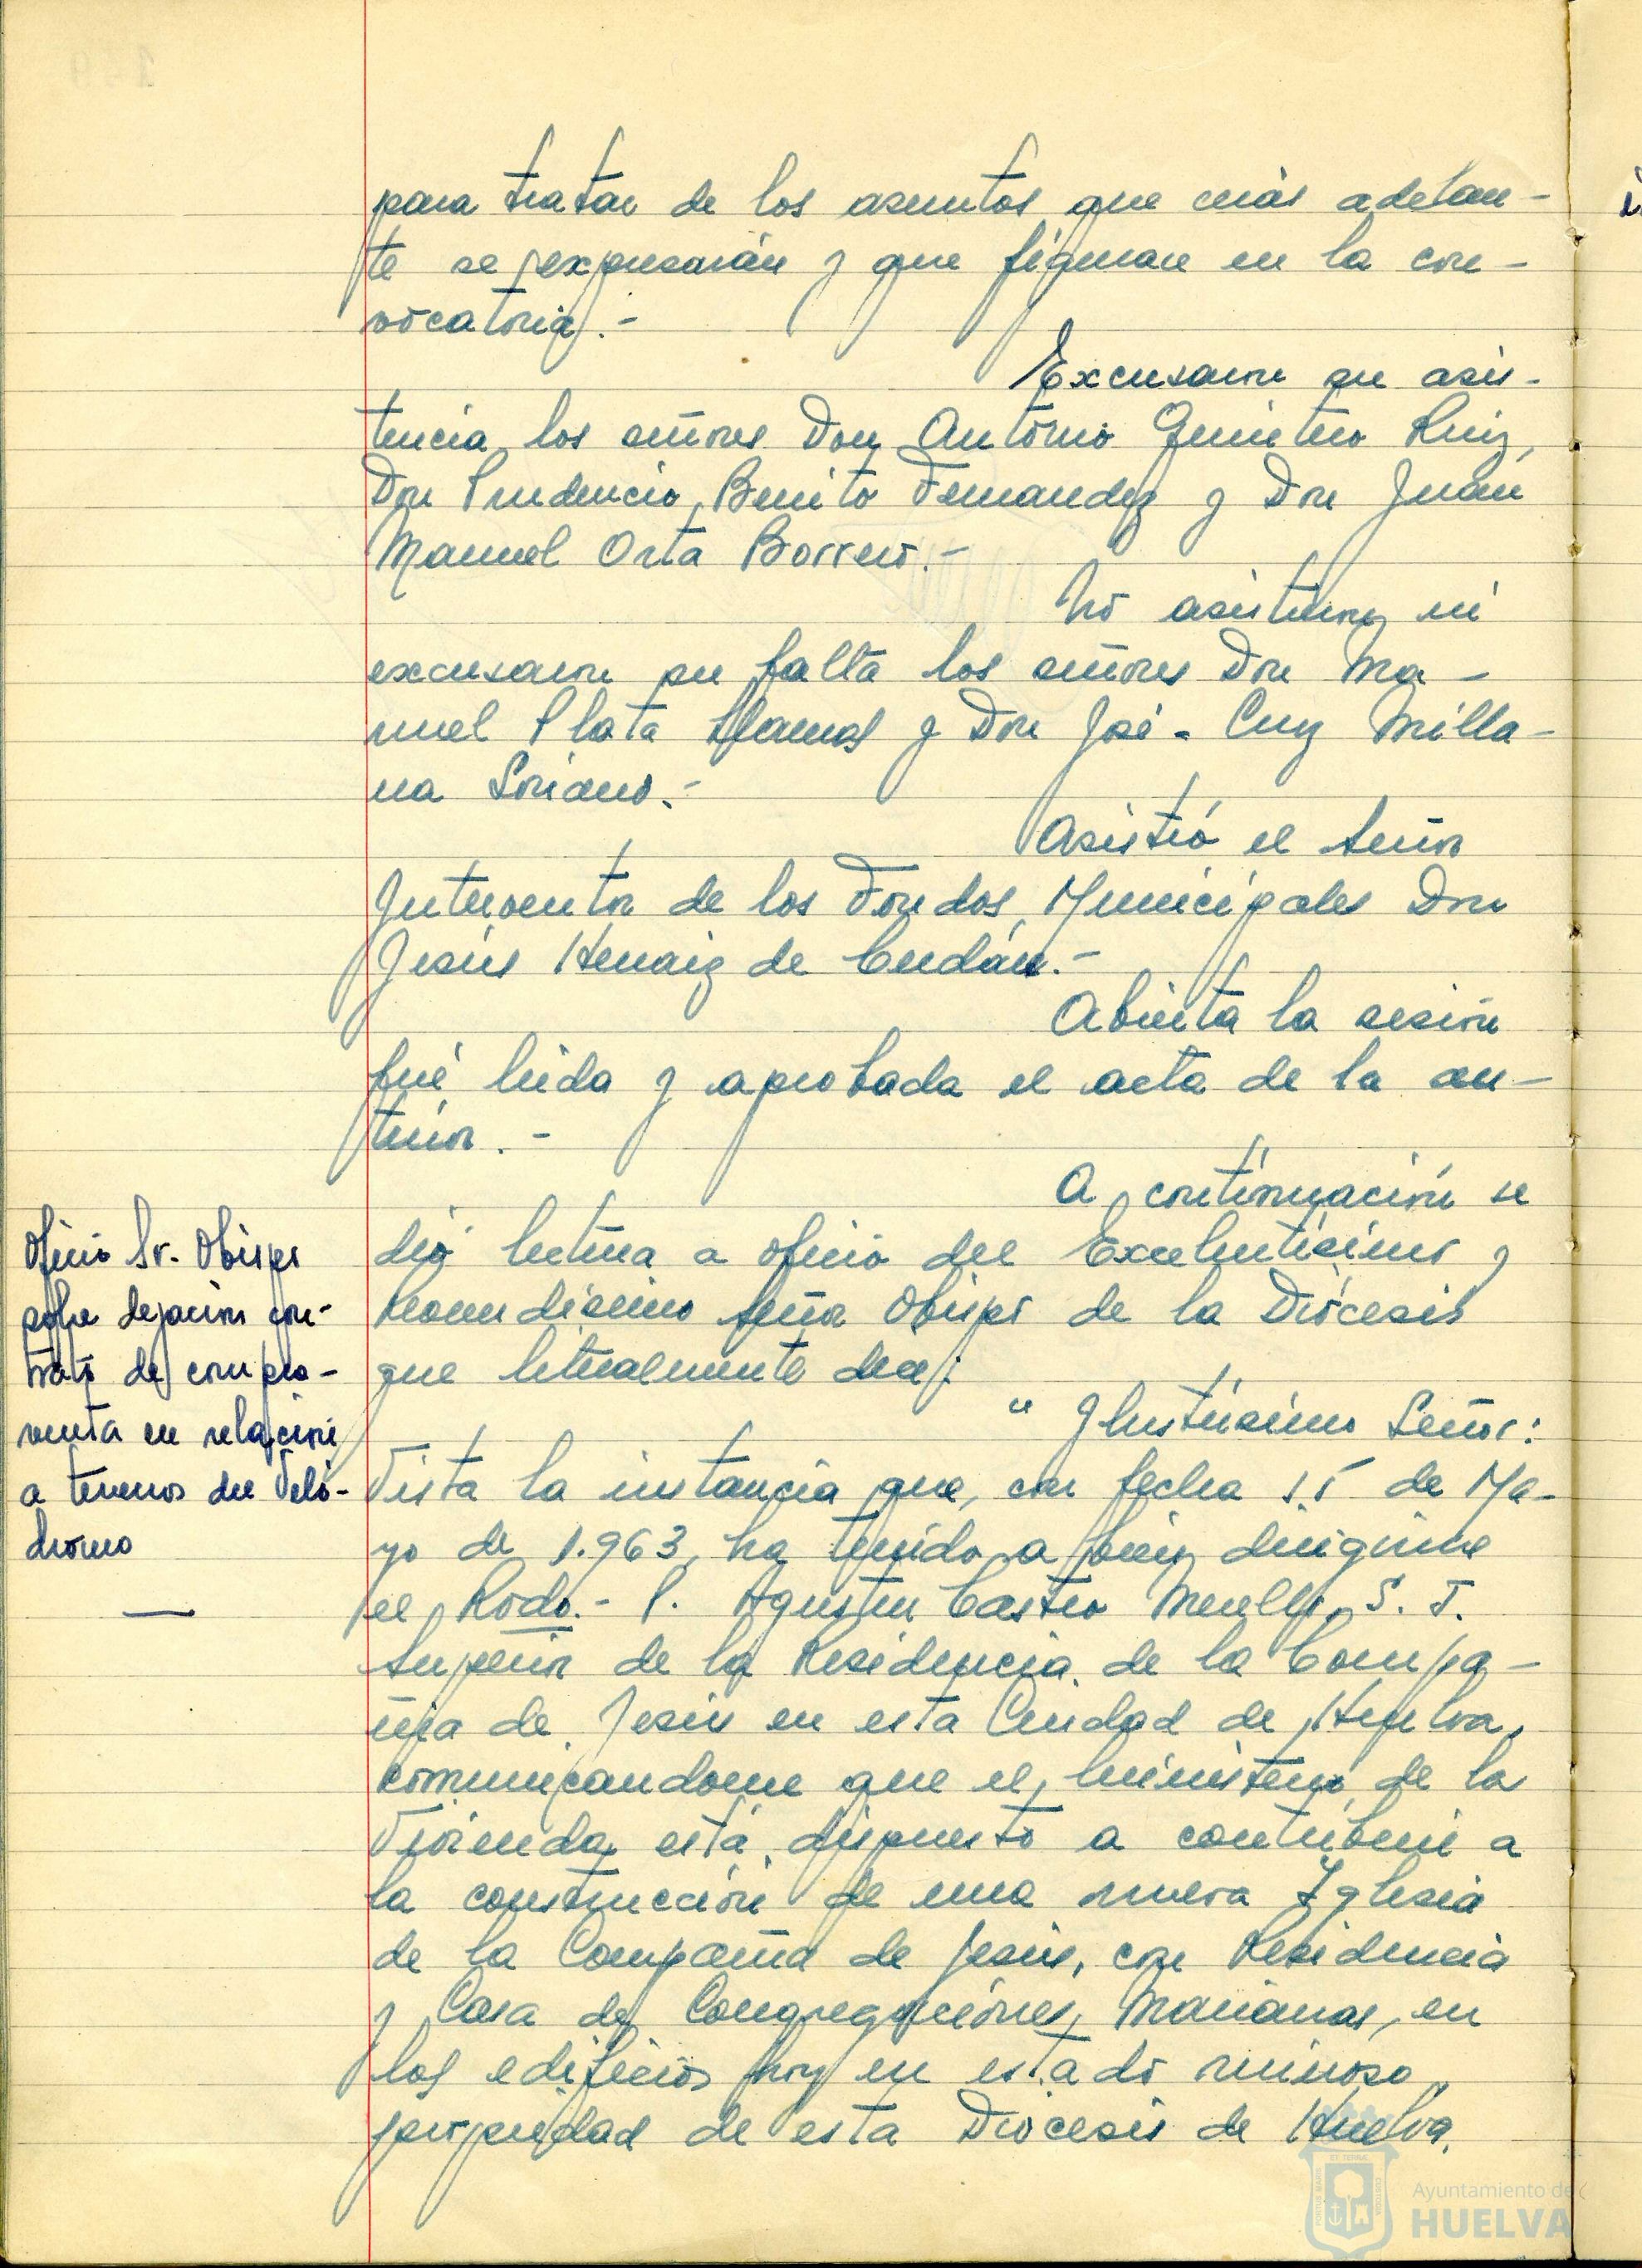 para tratar de los asuntos que más adelan-
te se expresarán y que figuran en la con-
vocatoria.-
Excusaron su asis-
tencia los señores Don Antonio Quintero Ruiz,
Don Prudencio Benito Fernandez y Don Juan
Manuel Orta Borrero.-
No asistieron ni
excusaron su falta los señores Don Ma-
nuel Plata Llamas y Don José-Cruz Milla-
na Soriano.-
Asistió el Señor
Interventor de los Fondos Municipales Don
Jesús Henaiz de
Abierta la sesión
fué leida y aprobada el acta de la an-
terior.-
A continuación se
dió lectura a oficio del Excelentísimo y
Reverendísimo Señor Obispo de la Diócesis
que literalmente dice:
Oficio Sr. Obispo
sobre dejacion con-
trato de compra-
venta en relación
a terrenos del Veló-
dromo
" Ilustrísimo Señor:
Vista la instancia que, con fecha 15 de Ma-
yo de 1.963, ha tenido a bien dirigirme
el Rvdo.- P. Agustin Castro Merello, S. J.
Superior de la Residencia de la Compa-
ñia de Jesús en esta Ciudad de Huelva,
comunicandome que el Ministerio de la
Vivienda está dispuesto a contribuir a
la construcción de una nueva Iglesia
de la Compañia de Jesús, con Residencia
y Casa de Congregaciones Marianas, en
los edificios hoy en estado ruinoso,
propiedad de esta Diocesis de Huelva.
Ayuntamiento de
HUELVA